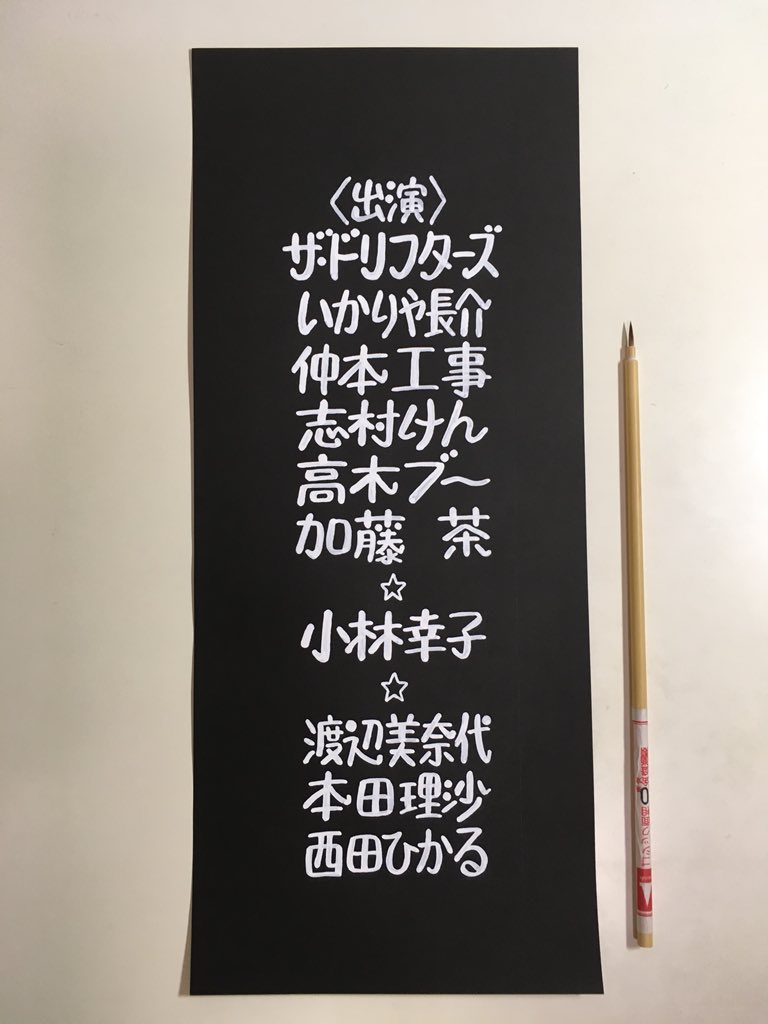 〈出演〉
ザ・ドリフターズ
いかりや長介
仲本工事
志村けん
高木ブ〜
加藤　茶
☆
小林幸子
☆
渡辺美奈代
本田理沙
西田ひかる
0